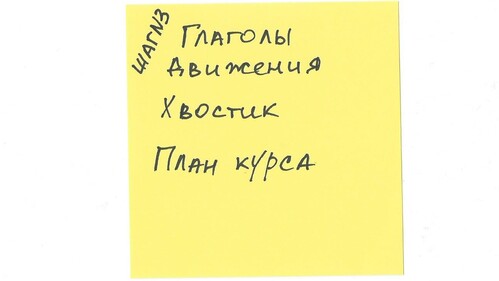 ШАГ№3
Глаголы
движения
Хвостик
План курса